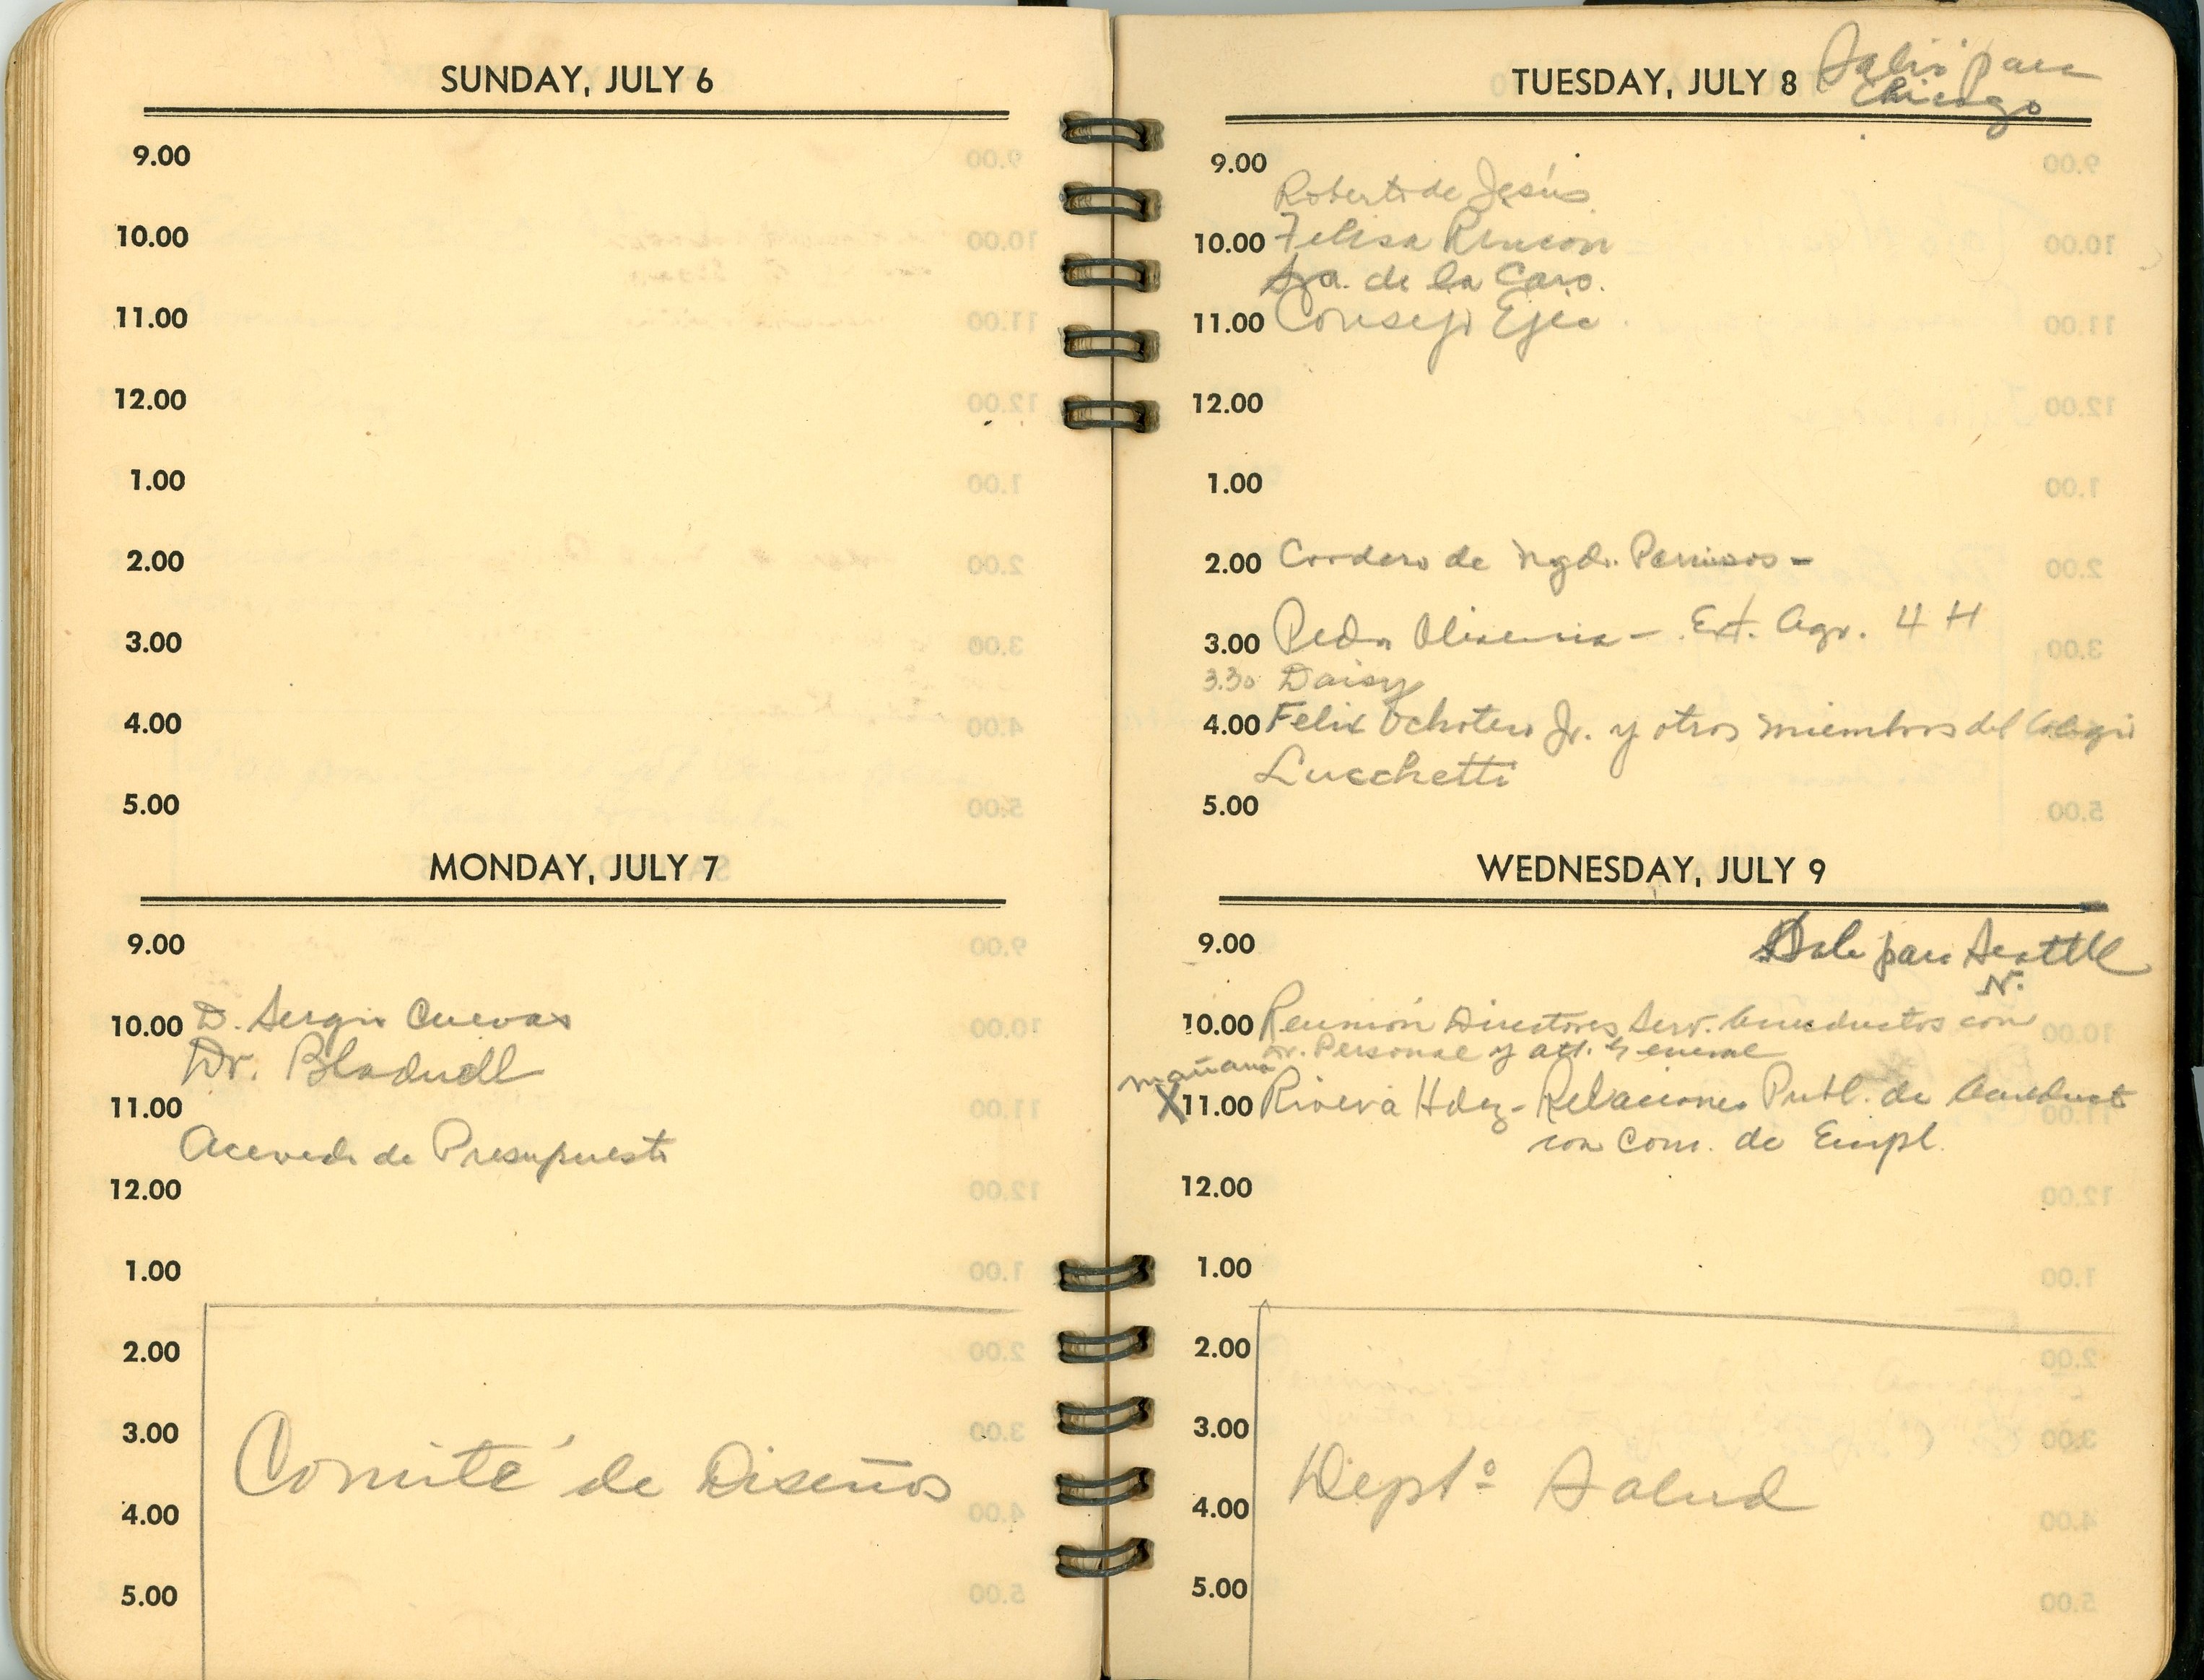 SUNDAY, JULY 6
9.00
10.00
11.00
12.00
1.00
2.00
3.00
4.00
5.00
MONDAY, JULY 7
9.00
10.00 D. Sergio Cuevas
Dr.
11.00
Acevedo de Presupuesto
12.00
1.00
2.00
3.00
Comité de Diseños
4.00
5.00
TUESDAY, JULY 8 Salió para
Chicago
9.00
Roberto de Jesús
10.00 Felisa Rincon
Sra. de la Caro.
11.00 Consejo Ejec
12.00
1.00
2.00 Cordero de Ngdo. Permisos -
3.00 Pedro Olivencia - Ext. Agr. 4 H
3.30 Daisy
4.00 Felix Ochoteco Jr. y otros miembros del Colegio
Lucchetti
5.00
WEDNESDAY, JULY 9
9.00 Sale para Seattle
10.00 Reunión Directores Serv. Acueductos con
Personal y Att. General
mañana
X 11.00 Rivera Hdez - Relaciones Publ. de Acueduct
con Com. de Empl.
12.00
1.00
2.00
3.00
Deptº Salud
4.00
5.00